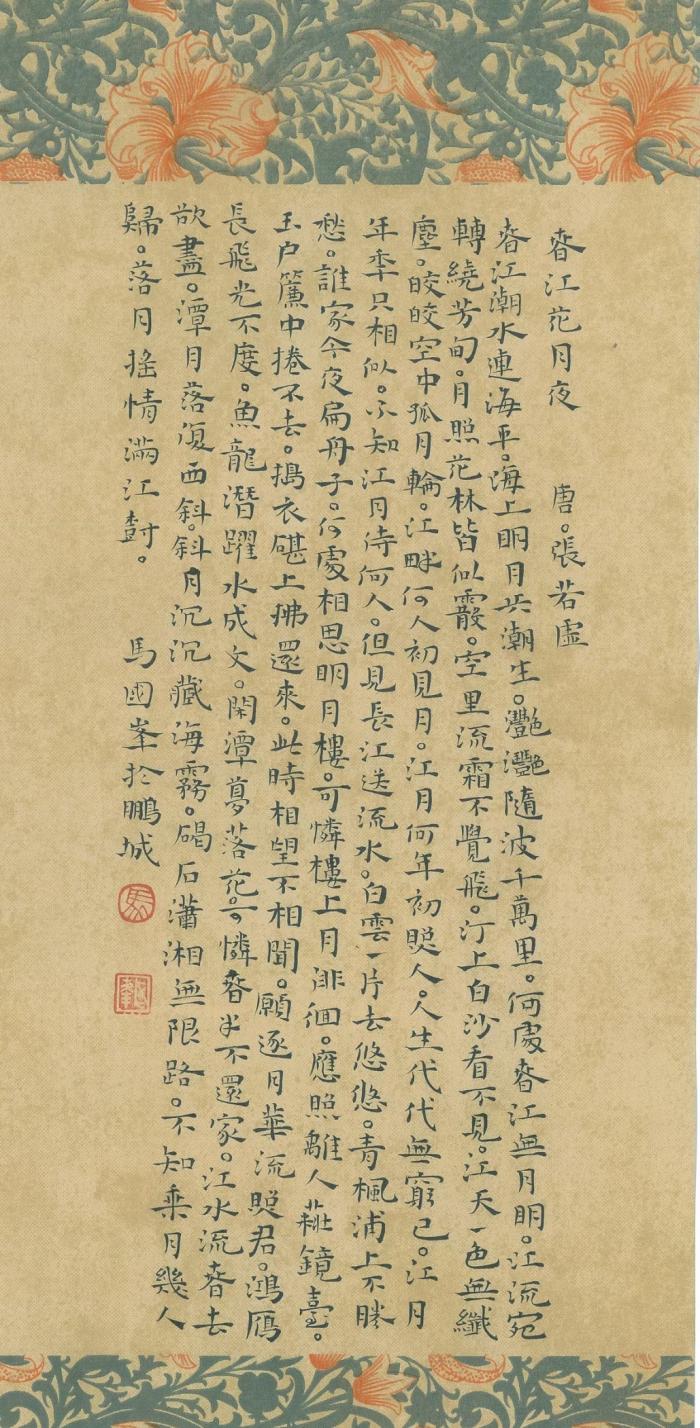 春江花月夜 唐。張若虛
春江潮水連海平。海上明月共潮生。灩灩隨波千萬里。何處春江無月明。江流宛
轉繞芳甸。月照花林皆似霰。空里流霜不覺飛。汀上白沙看不見。江天一色無纖
塵。皎皎空中孤月輪。江畔何人初見月。江月何年初照人。人生代代無窮已。江月
年年只相似。不知江月待何人。但見長江送流水。白雲一片去悠悠。青楓浦上不勝
愁。誰家今夜扁舟子。何處相思明月樓。可憐樓上月徘徊。應照離人妝鏡臺。
玉户簾中捲不去。搗衣碪上拂還來。此時相望不相聞。願逐月華流照君。鴻鴈
長飛光不度。魚龍潛躍水成文。閑潭夢落花。可憐春半不還家。江水流春去
欲盡。潭月落復西斜。斜月沉沉藏海霧。碣石瀟湘無限路。不知乘月幾人
歸。落月搖情滿江樹。 馬國峯於鵬城
馬